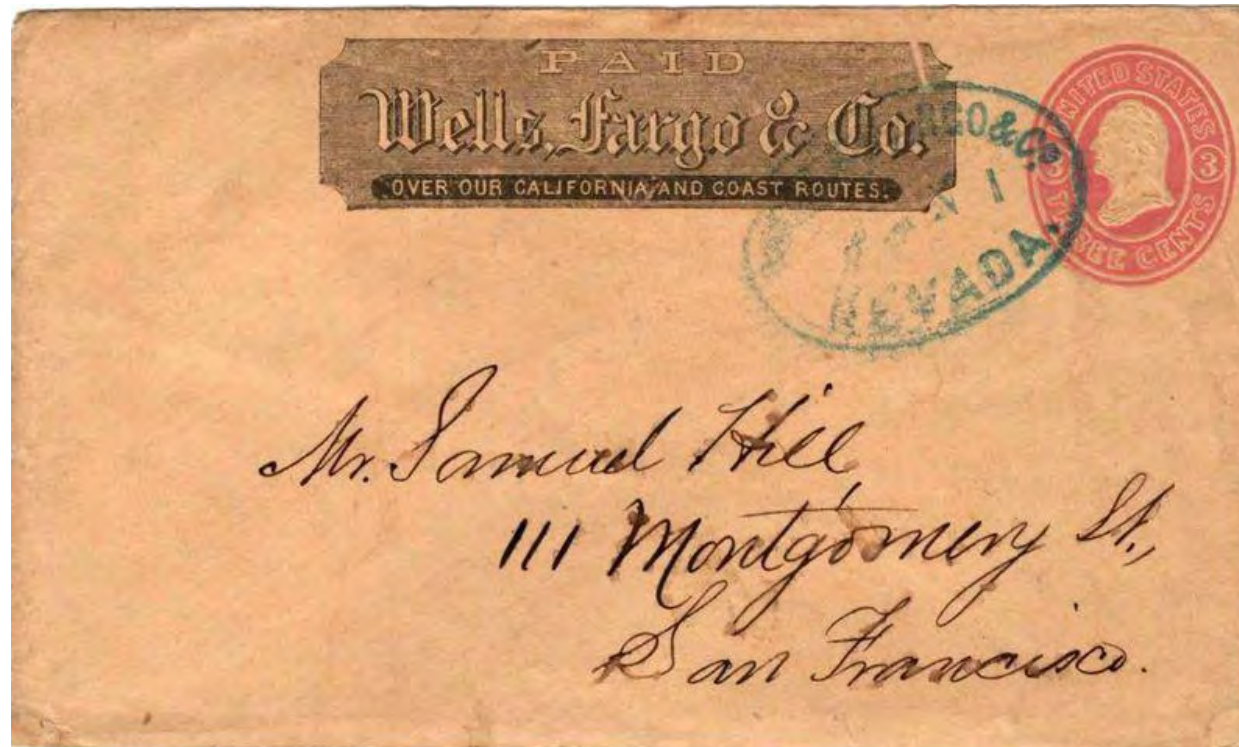 PAID
Wells, Fargo & Co.
OVER OUR CALIFORNIA AND COAST ROUTES.
UNITED STATES
3
THREE CENTS
1
NEVADA.
Mr. Samuel Hill
111 Montgomery St.,
San Francisco.